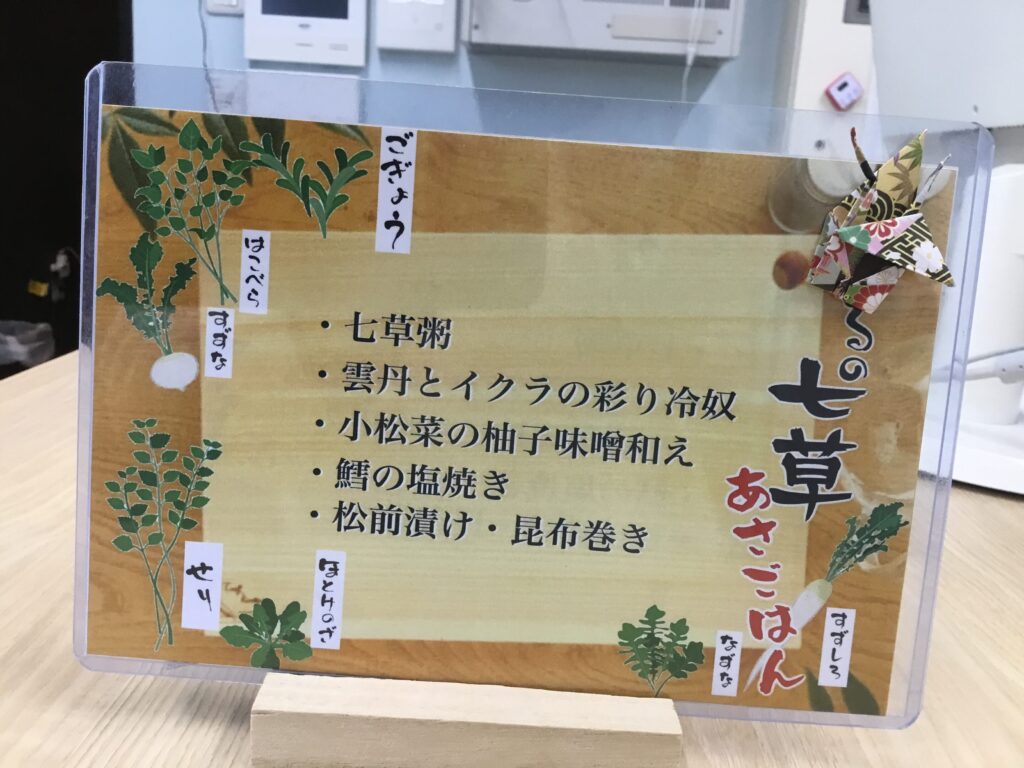 の七草
あさごはん
・七草粥
・雲丹とイクラの彩り冷奴
・小松菜の柚子味噌和え
・鱈の塩焼き
・松前漬け・昆布巻き
ごぎょう
はこべら
すずな
せり
ほとけのざ
なずな
すずしろ